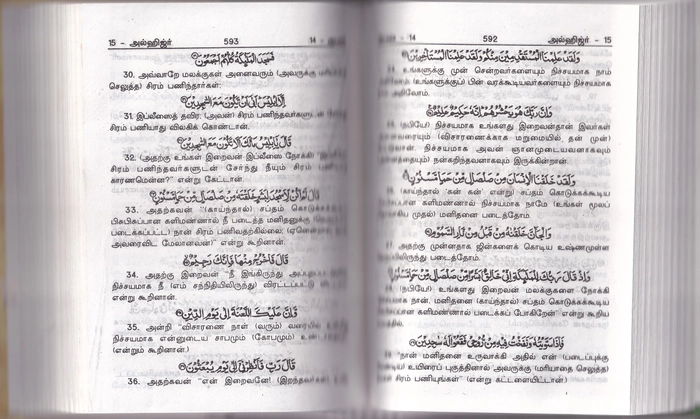 - 14 592 அல்ஹிஜ்ர் - 15
وَلَقَدْ عَلِمْنَا الْمُسْتَقْدِمِيْنَ مِنْكُمْ وَلَقَدْ عَلِمْنَا الْمُسْتَاْخِرِيْنَ
உங்களுக்கு முன் சென்றவர்களையும் நிச்சயமாக நாம்
(உங்களுக்குப்) பின் வரக்கூடியவர்களையும் நிச்சயமாக
அறிவோம்.
وَاِنَّ رَبَّكَ هُوَ يَحْشُرُهُمْ اِنَّهٗ حَكِيْمٌ عَلِيْمٌ
(நபியே) நிச்சயமாக உங்களது இறைவன்தான் இவர்கள்
(விசாரணைக்காக மறுமையில், தன் முன்)
நிச்சயமாக அவன் ஞானமுடையவனாகவும்
நன்கறிந்தவனாகவும் இருக்கின்றான்.
وَلَقَدْ خَلَقْنَا الْاِنْسَانَ مِنْ صَلْصَالٍ مِّنْ حَمَاٍ مَّسْنُوْنٍ
(காய்ந்தால் 'கன் கன்' என்று) சப்தம் கொடுக்கக்கூடிய
களிமண்ணால் நிச்சயமாக நாமே (உங்கள் மூலப்
முதல்) மனிதனை படைத்தோம்.
وَالْجَآنَّ خَلَقْنٰهُ مِنْ قَبْلُ مِنْ نَّارِ السَّمُوْمِ
அதற்கு முன்னதாக ஜின்களைக் கொடிய உஷ்ணமுள்ள
படைத்தோம்.
وَاِذْ قَالَ رَبُّكَ لِلْمَلٰٓئِكَةِ اِنِّيْ خَالِقٌ بَشَرًا مِّنْ صَلْصَالٍ مِّنْ حَمَاٍ مَّسْنُوْنٍ
(நபியே) உங்களது இறைவன் மலக்குகளை நோக்கி
நான், மனிதனை (காய்ந்தால்) சப்தம் கொடுக்கக்கூடிய
களிமண்ணால் படைக்கப் போகிறேன்" என்று கூறிய
فَاِذَا سَوَّيْتُهٗ وَنَفَخْتُ فِيْهِ مِنْ رُّوْحِيْ فَقَعُوْا لَهٗ سٰجِدِيْنَ
"நான் மனிதனை உருவாக்கி அதில் என் (படைப்புக்கு
உயிரைப் புகுத்தினால் அவனுக்கு (மரியாதை செலுத்த)
சிரம் பணியுங்கள்" (என்று கட்டளையிட்டான்.)
15 - அல்ஹிஜ்ர் 593 14 -
فَسَجَدَ الْمَلٰٓئِكَةُ كُلُّهُمْ اَجْمَعُوْنَ
30. அவ்வாறே மலக்குகள் அனைவரும் (அவருக்கு
செலுத்த) சிரம் பணிந்தார்கள்:
اِلَّآ اِبْلِيْسَ اَبٰٓى اَنْ يَّكُوْنَ مَعَ السّٰجِدِيْنَ
31. இப்லீஸைத் தவிர, (அவன்) சிரம் பணிந்தவர்களுடன்
சிரம் பணியாது விலகிக் கொண்டான்.
قَالَ يٰٓاِبْلِيْسُ مَا لَكَ اَلَّا تَكُوْنَ مَعَ السّٰجِدِيْنَ
32. (அதற்கு உங்கள் இறைவன் இப்லீஸை நோக்கி)
சிரம் பணிந்தவர்களுடன் சேர்ந்து நீயும் சிரம்
காரணமென்ன?" என்று கேட்டான்.
قَالَ لَمْ اَكُنْ لِّاَسْجُدَ لِبَشَرٍ خَلَقْتَهٗ مِنْ صَلْصَالٍ مِّنْ حَمَاٍ مَّسْنُوْنٍ
33. அதற்கவன் "(காய்ந்தால்) சப்தம் கொடுக்கக்கூடிய
பிசுபிசுப்பான களிமண்ணால் நீ படைத்த மனிதனுக்கு
படைக்கப்பட்ட) நான் சிரம் பணிவதற்கில்லை;
அவரைவிட மேலானவன்" என்று கூறினான்.
قَالَ فَاخْرُجْ مِنْهَا فَاِنَّكَ رَجِيْمٌ
34. அதற்கு இறைவன் "நீ இங்கிருந்து அப்புறப்
நிச்சயமாக நீ (எம் சந்நிதியிலிருந்து) விரட்டப்பட்டு
என்று கூறினான்.
وَّاِنَّ عَلَيْكَ اللَّعْنَةَ اِلٰى يَوْمِ الدِّيْنِ
35. அன்றி "விசாரணை நாள் (வரும்) வரையில்
நிச்சயமாக என்னுடைய சாபமும் (கோபமும்) உண்
(என்றும் கூறினான்.)
قَالَ رَبِّ فَاَنْظِرْنِيْٓ اِلٰى يَوْمِ يُبْعَثُوْنَ
36. அதற்கவன் "என் இறைவனே! (இறந்தவர்கள்)